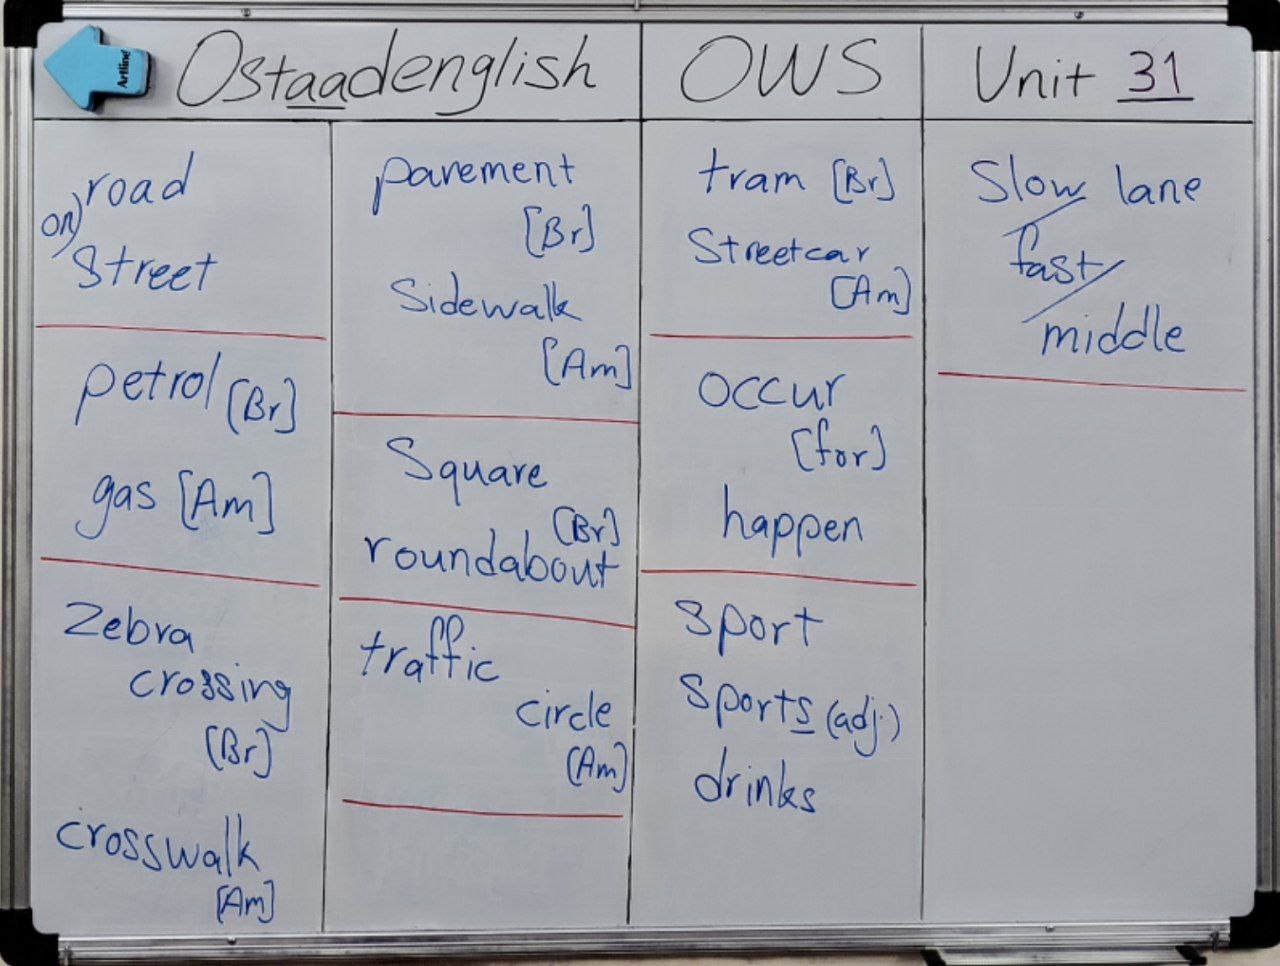 Artline
Ostaadenglish
OWS
Unit 31
on) road
street
petrol [Br]
gas [Am]
Zebra
crossing
[Br]
crosswalk
[Am]
pavement
[Br]
Sidewalk
[Am]
Square
[Br]
roundabout
traffic
circle
[Am]
tram [Br]
Streetcar
[Am]
occur
[for]
happen
Sport
Sports (adj.)
drinks
Slow lane
fast
middle